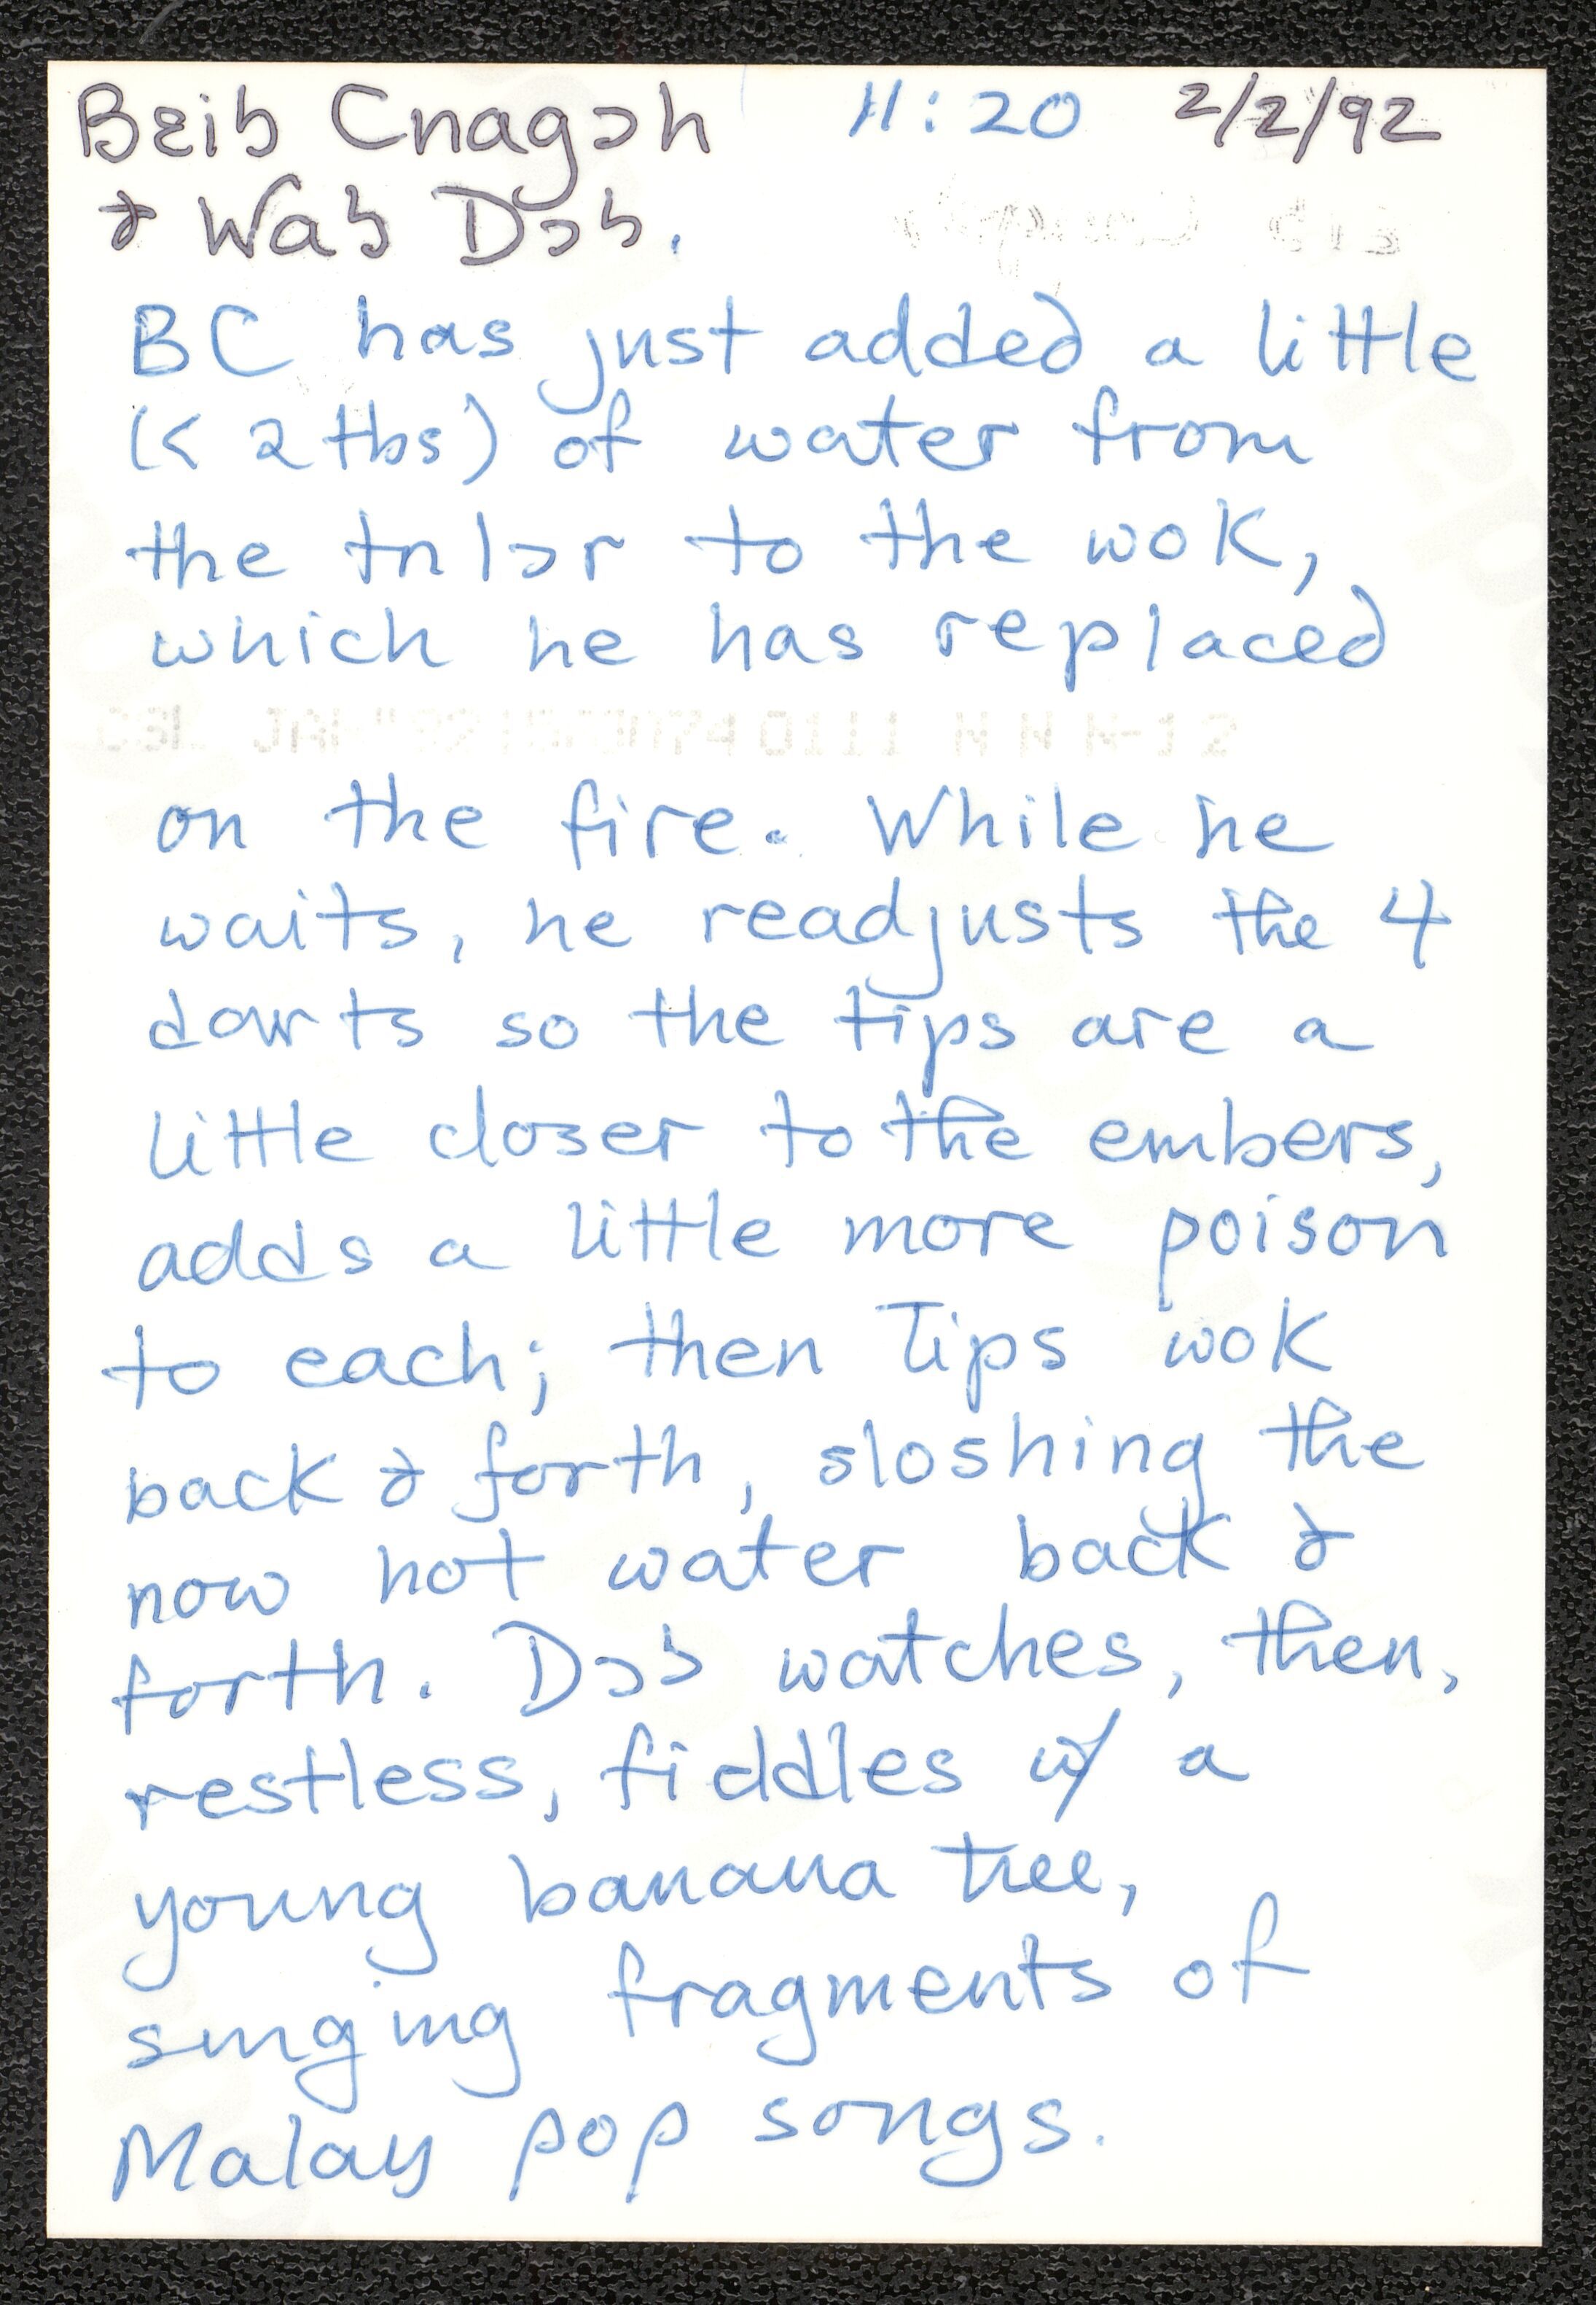 Bɛiɔ Cnagɔh 11:20 2/2/92
& Waɔ Dɔɔ.
BC has just added a little
(< 2 tbs) of water from
the tnlɔr to the wok,
which he has replaced
on the fire. While he
waits, he readjusts the 4
darts so the tips are a
little closer to the embers,
adds a little more poison
to each; then Tips wok
back & forth, sloshing the
now hot water back &
forth. Dɔɔ watches, then,
restless, fiddles w/ a
young banana tree,
singing fragments of
Malay pop songs.